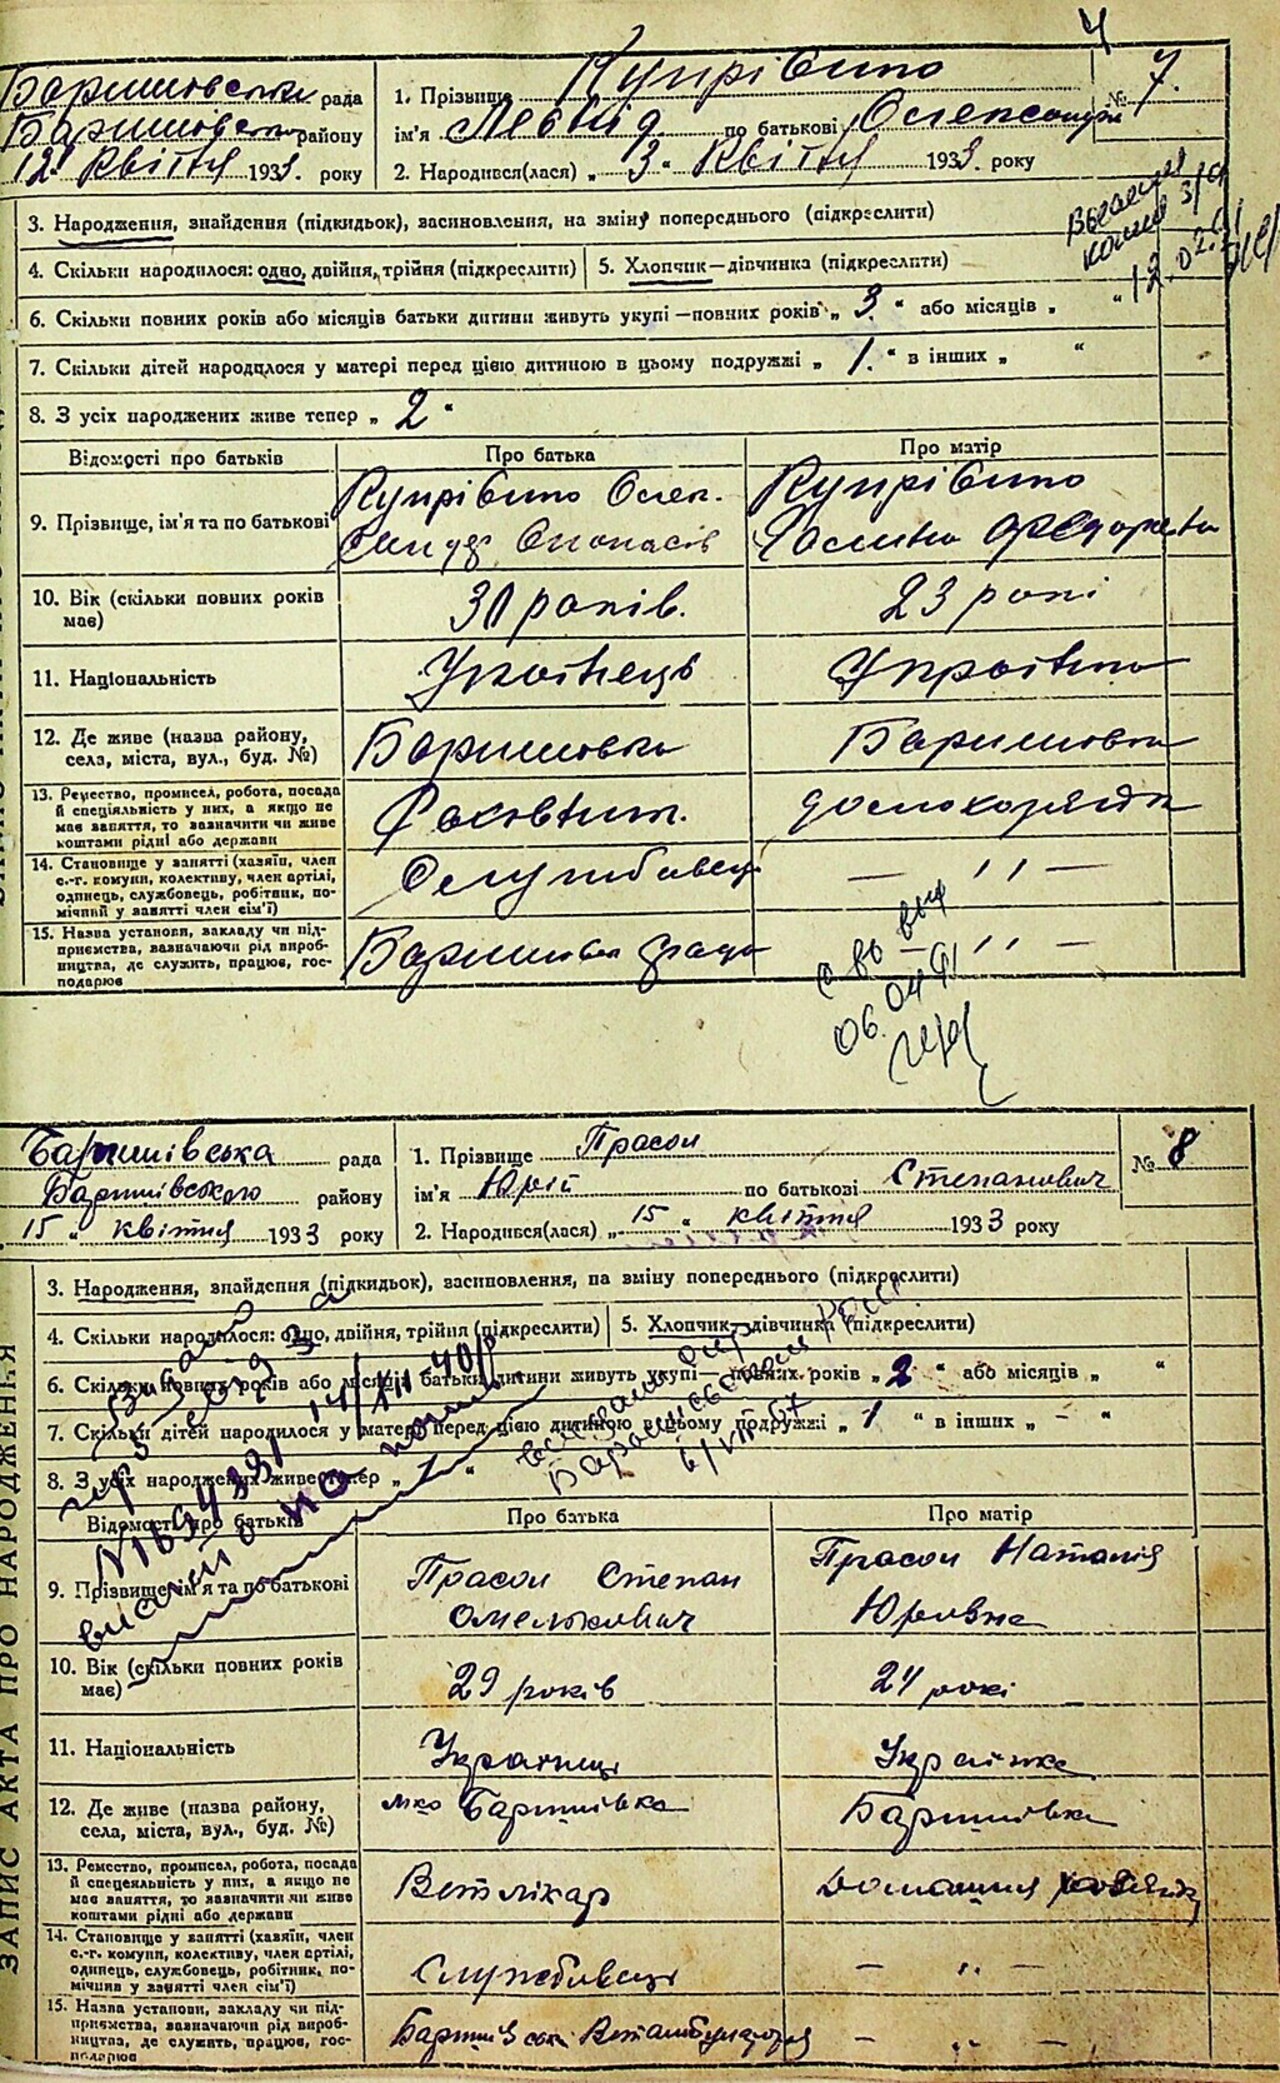 4
Баришовська рада
Баришовсько району
12 Квітня 1933. року
1. Прізвище Купрієнко
№ 7.
ім'я Леонід по батькові Олександр
2. Народився(лася) „ 3 " Квітня 1933. року
3. Народження, знайдення (підкидьок), засиновлення, на зміну попереднього (підкреслити)
4. Скільки народилося: одно, двійня, трійня (підкреслити)
5. Хлопчик—дівчинка (підкреслити)
12.02.
6. Скільки повних років або місяців батьки дитини живуть укупі—повних років „ 3. " або місяців „ "
7. Скільки дітей народилося у матері перед цією дитиною в цьому подружжі „ 1. " в інших „ "
8. З усіх народжених живе тепер „ 2 "
Відомості про батьків
Про батька
Про матір
9. Прізвище, ім'я та по батькові
Купрієнко Олек.
сандр Опонасів
Купрієнко
10. Вік (скільки повних років
має)
31 років.
23 рокі
11. Національність
Українець
Українка
12. Де живе (назва району,
села, міста, вул., буд. №)
Баришовка
Баришовка
13. Ремество, промисел, робота, посада
й спеціяльність у них, а якщо не
має заняття, то зазначити чи живе
коштами рідні або держави
домохозяйка
14. Становище у занятті (хазяїн, член
с.-г. комуни, колективу, член артілі,
одинець, службовець, робітник, по-
мічний у занятті член сім'ї)
Службовець
— ,, —
15. Назва установи, закладу чи під-
приємства, зазначаючи рід вироб-
ництва, де служить, працює, гос-
подарює
— ,, —
06.04.91
ЗАПИС АКТА ПРО НАРОДЖЕННЯ
Баришівська рада
Баришівського району
15 „ квітня 1933 року
1. Прізвище Прасол
№ 8
ім'я Юрій по батькові Степанович
2. Народився(лася) „ 15 " квітня 1933 року
3. Народження, знайдення (підкидьок), засиновлення, на зміну попереднього (підкреслити)
4. Скільки народилося: одно, двійня, трійня (підкреслити)
5. Хлопчик—дівчинка (підкреслити)
6. Скільки повних років або місяців батьки дитини живуть укупі—повних років „ 2 " або місяців „ "
7. Скільки дітей народилося у матері перед цією дитиною в цьому подружжі „ 1 " в інших „ – "
8. З усіх народжених живе тепер „ 1 "
Відомості про батьків
Про батька
Про матір
9. Прізвище, ім'я та по батькові
Прасол Степан
Омелькович
Прасол Наталія
Юрівна
10. Вік (скільки повних років
має)
29 років
24 рокі
11. Національність
Українець
Українка
12. Де живе (назва району,
села, міста, вул., буд. №)
м-ко Баришівка
Баришівка
13. Ремество, промисел, робота, посада
й спецеяльність у них, а якщо не
має заняття, то зазначити чи живе
коштами рідні або держави
Ветлікар
Домашня
14. Становище у занятті (хазяїн, член
с.-г. комуни, колективу, член артілі,
одинець, службовець, робітник, по-
мічний у занятті член сім'ї)
Службовець
— „ —
15. Назва установи, закладу чи під-
приємства, зазначаючи рід вироб-
ництва, де служить, працює, гос-
подарює
Баришівська Ветамбулаторія
— „ —